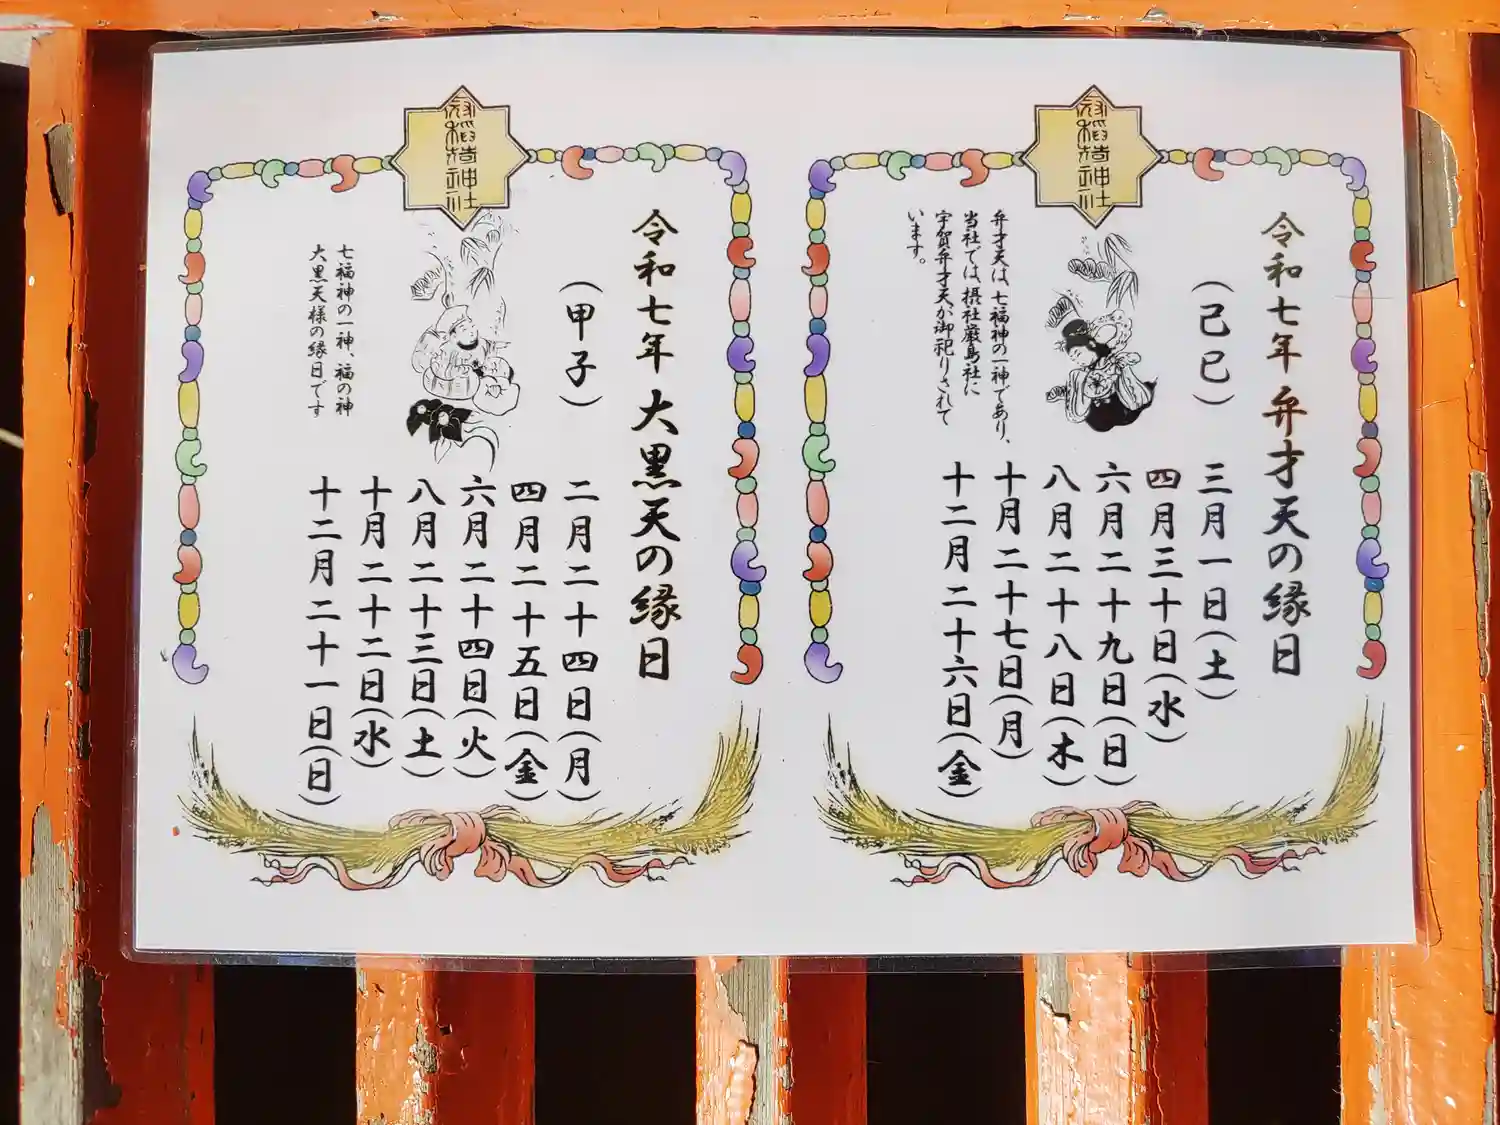 令和七年 弁才天の縁日
(己巳)
三月一日(土)
四月三十日(水)
六月二十九日(日)
八月二十八日(木)
十月二十七日(月)
十二月二十六日(金)
弁才天は、七福神の一神であり、
当社では、摂社厳島社に
宇賀弁才天が御祀りされて
います。
令和七年 大黒天の縁日
(甲子)
二月二十四日(月)
四月二十五日(金)
六月二十四日(火)
八月二十三日(土)
十月二十二日(水)
十二月二十一日(日)
七福神の一神、福の神
大黒天様の縁日です